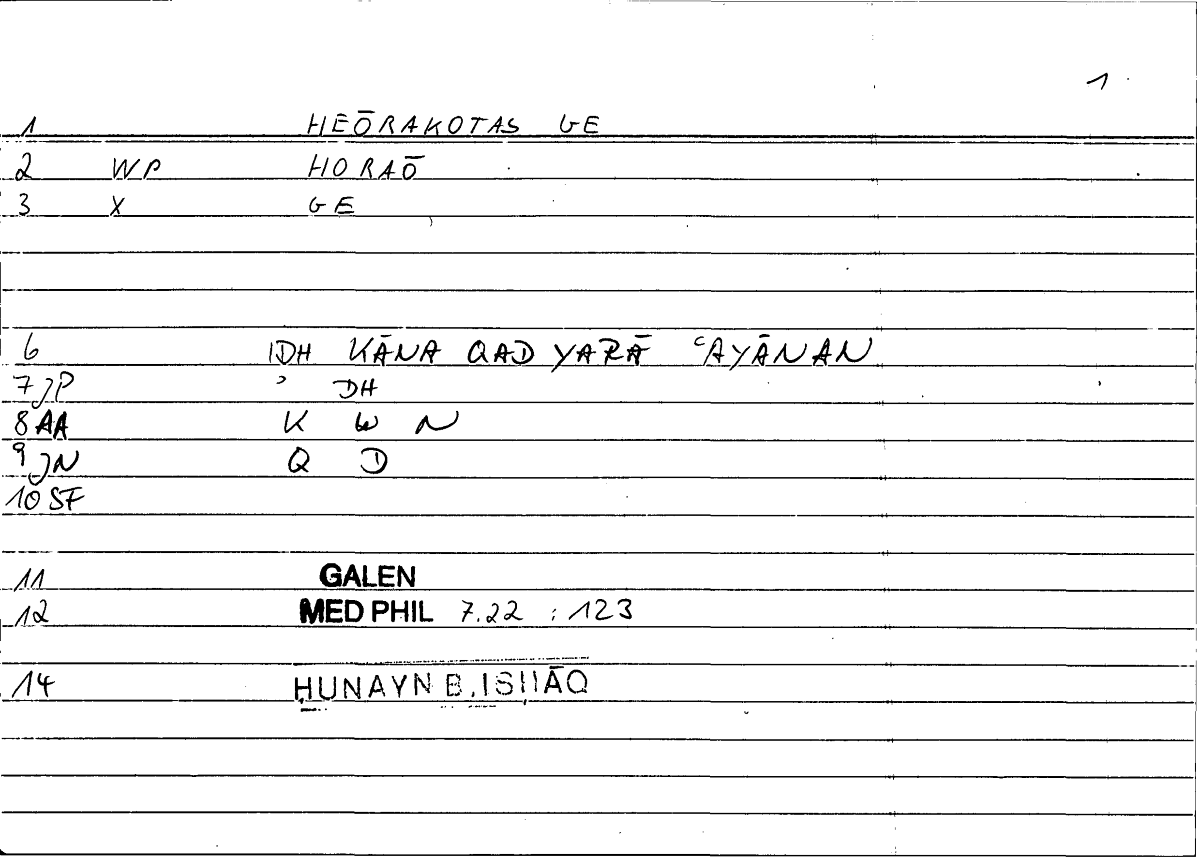 1
1 HEŌRAKOTAS GE
2 WP HORAŌ
3 X GE
6 IDH KĀNA QAD YARĀ ʿAYĀNAN
7 JP ʾ DH
8 AA K W N
9 JN Q D
10 SF
11 GALEN
12 MED PHIL 7.22 : 123
14 ḤUNAYN B. ISḤĀQ